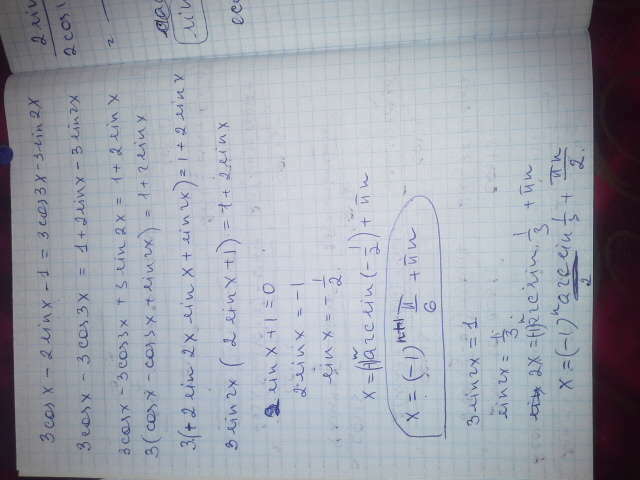 2 sin
2 cos
=
3cosx - 2sinx - 1 = 3cos3x - 3sin2x
3cosx - 3cos3x = 1 + 2sinx - 3sin2x
3cosx - 3cos3x + 3sin2x = 1 + 2sinx
3(cosx - cos3x + sin2x) = 1 + 2sinx
3(+2sin2x sinx + sin2x) = 1 + 2sinx
3sin2x (2sinx + 1) = 1 + 2sinx
2sinx + 1 = 0
2sinx = -1
sinx = -1/2
x = (-1)ⁿ arcsin(-1/2) + πn
x = (-1)ⁿ⁺¹ π/6 + πn
3sin2x = 1
sin2x = 1/3
2x = (-1)ⁿ arcsin 1/3 + πn
x = (-1)ⁿ arcsin 1/3 / 2 + πn/2.